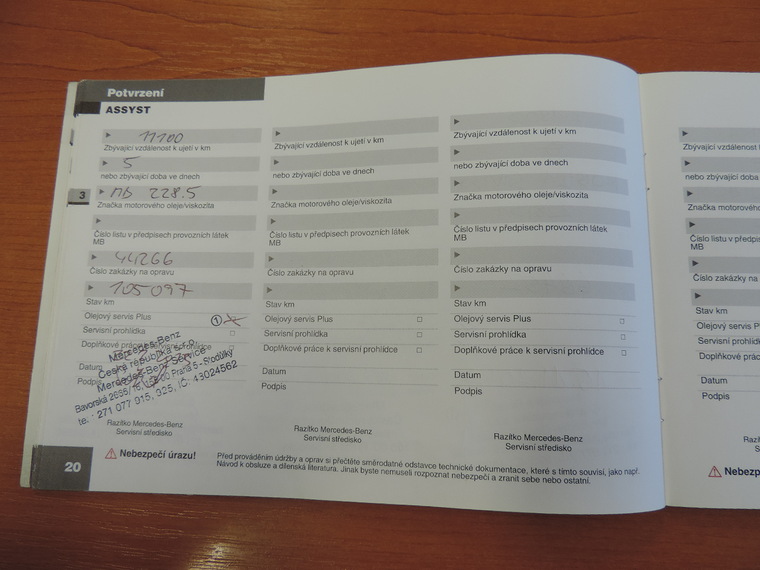 Potvrzení
ASSYST
11100
Zbývající vzdálenost k ujetí v km
5
nebo zbývající doba ve dnech
MB 228.5
Značka motorového oleje/viskozita
Číslo listu v předpisech provozních látek
MB
44266
Číslo zakázky na opravu
105097
Stav km
Olejový servis Plus
1
Servisní prohlídka
Doplňkové práce
Datum
Podpis
Mercedes-Benz
Česká republika s.r.o.
Mercedes-Benz Service
Bavorská 2665/16, 155 00 Praha 5 - Stodůlky
tel.: 271 077 915, 925, IČ: 43024562
Razítko Mercedes-Benz
Servisní středisko
Zbývající vzdálenost k ujetí v km
nebo zbývající doba ve dnech
Značka motorového oleje/viskozita
Číslo listu v předpisech provozních látek
MB
Číslo zakázky na opravu
Stav km
Olejový servis Plus
Servisní prohlídka
Doplňkové práce k servisní prohlídce
Datum
Podpis
Razítko Mercedes-Benz
Servisní středisko
Zbývající vzdálenost k ujetí v km
nebo zbývající doba ve dnech
Značka motorového oleje/viskozita
Číslo listu v předpisech provozních látek
MB
Číslo zakázky na opravu
Stav km
Olejový servis Plus
Servisní prohlídka
Doplňkové práce k servisní prohlídce
Datum
Podpis
Razítko Mercedes-Benz
Servisní středisko
3
20
Nebezpečí úrazu!
Před prováděním údržby a oprav si přečtěte směrodatné odstavce technické dokumentace, které s tímto souvisí, jako např.
Návod k obsluze a dílenská literatura. Jinak byste nemuseli rozpoznat nebezpečí a zranit sebe nebo ostatní.
Zbývající vzdálenost
nebo zbývající doba
Značka motorového
Číslo listu v předpis
MB
Číslo zakázky na
Stav km
Olejový servis P
Servisní prohlíd
Doplňkové prác
Datum
Podpis
Razí
S
Nebezp